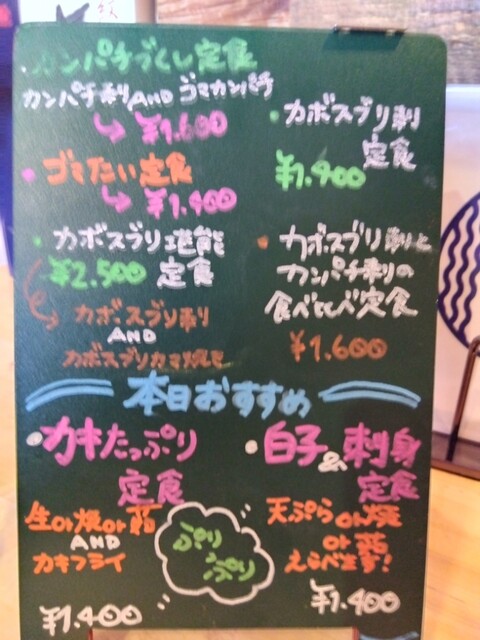 ・カンパチづくし定食
カンパチ刺ANDゴマカンパチ
¥1.600
・ゴマたい定食
¥1.400
・カボスブリ刺
定食
¥1.900
・カボスブリ堪能
定食
¥2.500
カボスブリ刺
AND
カボスブリカマ焼き
・カボスブリ刺と
カンパチ刺の
食べくらべ定食
¥1.600
本日おすすめ
・カキたっぷり
定食
生or焼or蒸
AND
カキフライ
ぷり
ぷり
¥1.400
・白子&刺身
定食
天ぷらor焼
or蒸
えらべます!
¥1.400